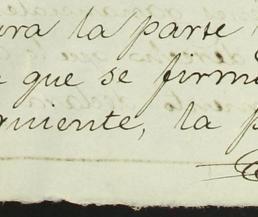 ra la parte
que se firm
uiente, la p